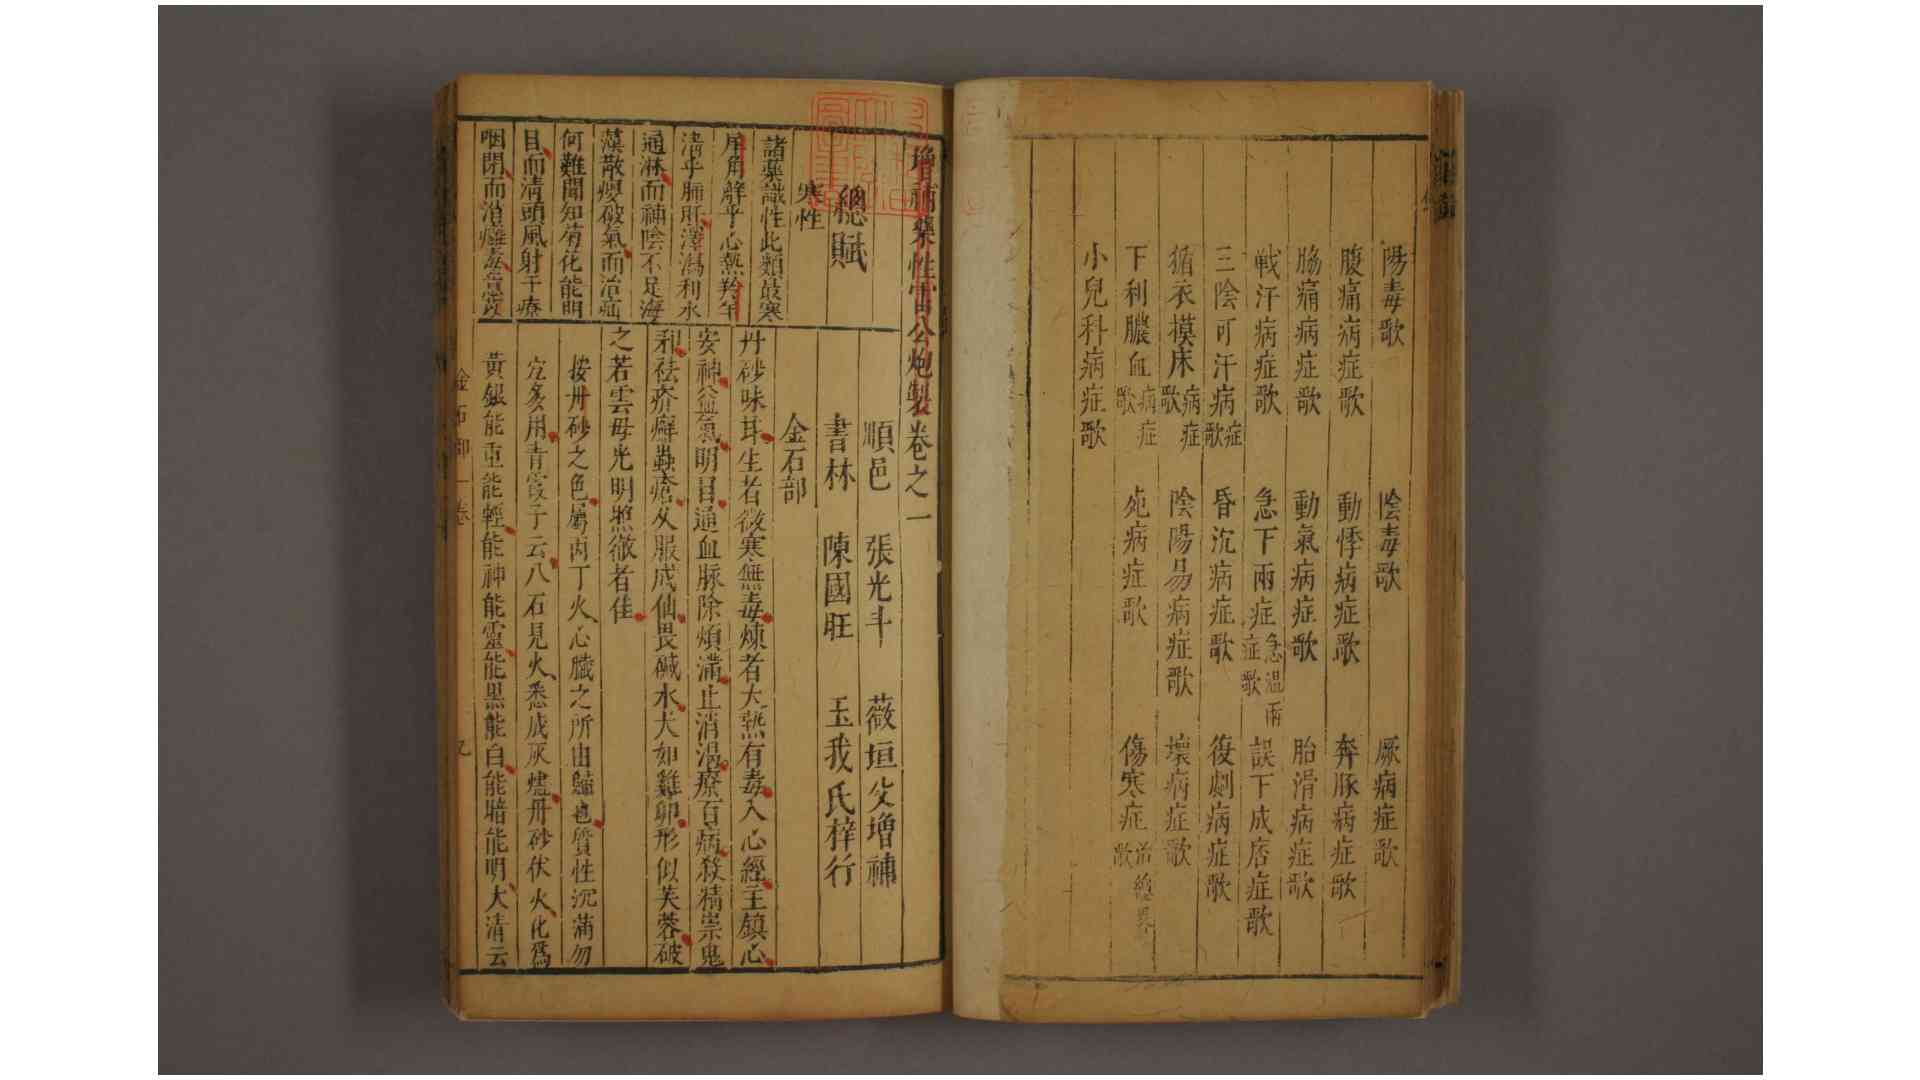 陽毒歌 陰毒歌 厥病症歌
腹痛病症歌 動悸病症歌 奔豚病症歌
脇痛病症歌 動氣病症歌 胎滑病症歌
戰汗病症歌 急下兩症急温兩症歌 誤下成痞症歌
三陰可汗病症歌 昏沉病症歌 復劇病症歌
循衣摸床病症歌 陰陽易病症歌 壞病症歌
下利膿血病症歌 死病症歌 傷寒症治歌
小兒科病症歌
增補藥性雷公炮製卷之一
總賦
寒性
諸藥識性此類最寒
犀角解乎心熱羚羊
清乎肺肝澤瀉利水
通淋而補陰不足海
藻散癭破氣而治疝
何難聞知菊花能明
目而清頭風射干療
咽閉而消癰毒薏苡
順邑 張光斗 薇垣父增補
書林 陳國旺 玉我氏梓行
金石部
丹砂味甘生者微寒無毒煉者大熱有毒入心經主鎮心
安神益氣明目通血脉除煩滿止消渴療百病殺精祟鬼
邪祛疥癬蟲瘡久服成仙畏鹹水大如雞卵形似芙蓉破
之若雲母光明照徹者佳
按丹砂之色屬丙丁火心臟之所由歸也質性沉滯勿
宜多用青霞子云八石見火悉成灰燼丹砂伏火化爲
黃銀能重能輕能神能靈能黑能白能暗能明大清云
金石部 一卷